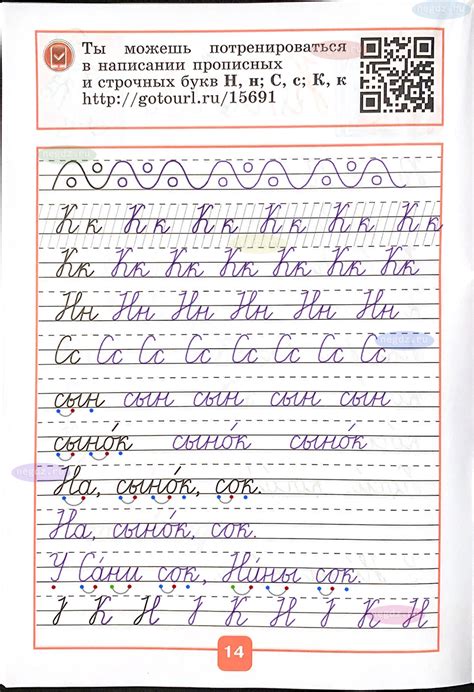 Ты можешь потренироваться
в написании прописных
и строчных букв Н, н; С, с; К, к
http://gotourl.ru/15691
Кк Кк Кк Кк Кк Кк
Кк Кк Кк Кк Кк Кк Кк
Нн Нн Нн Нн Нн Нн
Сс Сс Сс Сс Сс Сс Сс
сын сын сын сын сын
сыно́к сыно́к сыно́к
На, сыно́к, сок.
На, сыно́к, сок.
У Са́ни сок, Ни́ны сок.
К Н К Н К Н
14
negdz.ru
negdz.ru
negdz.ru